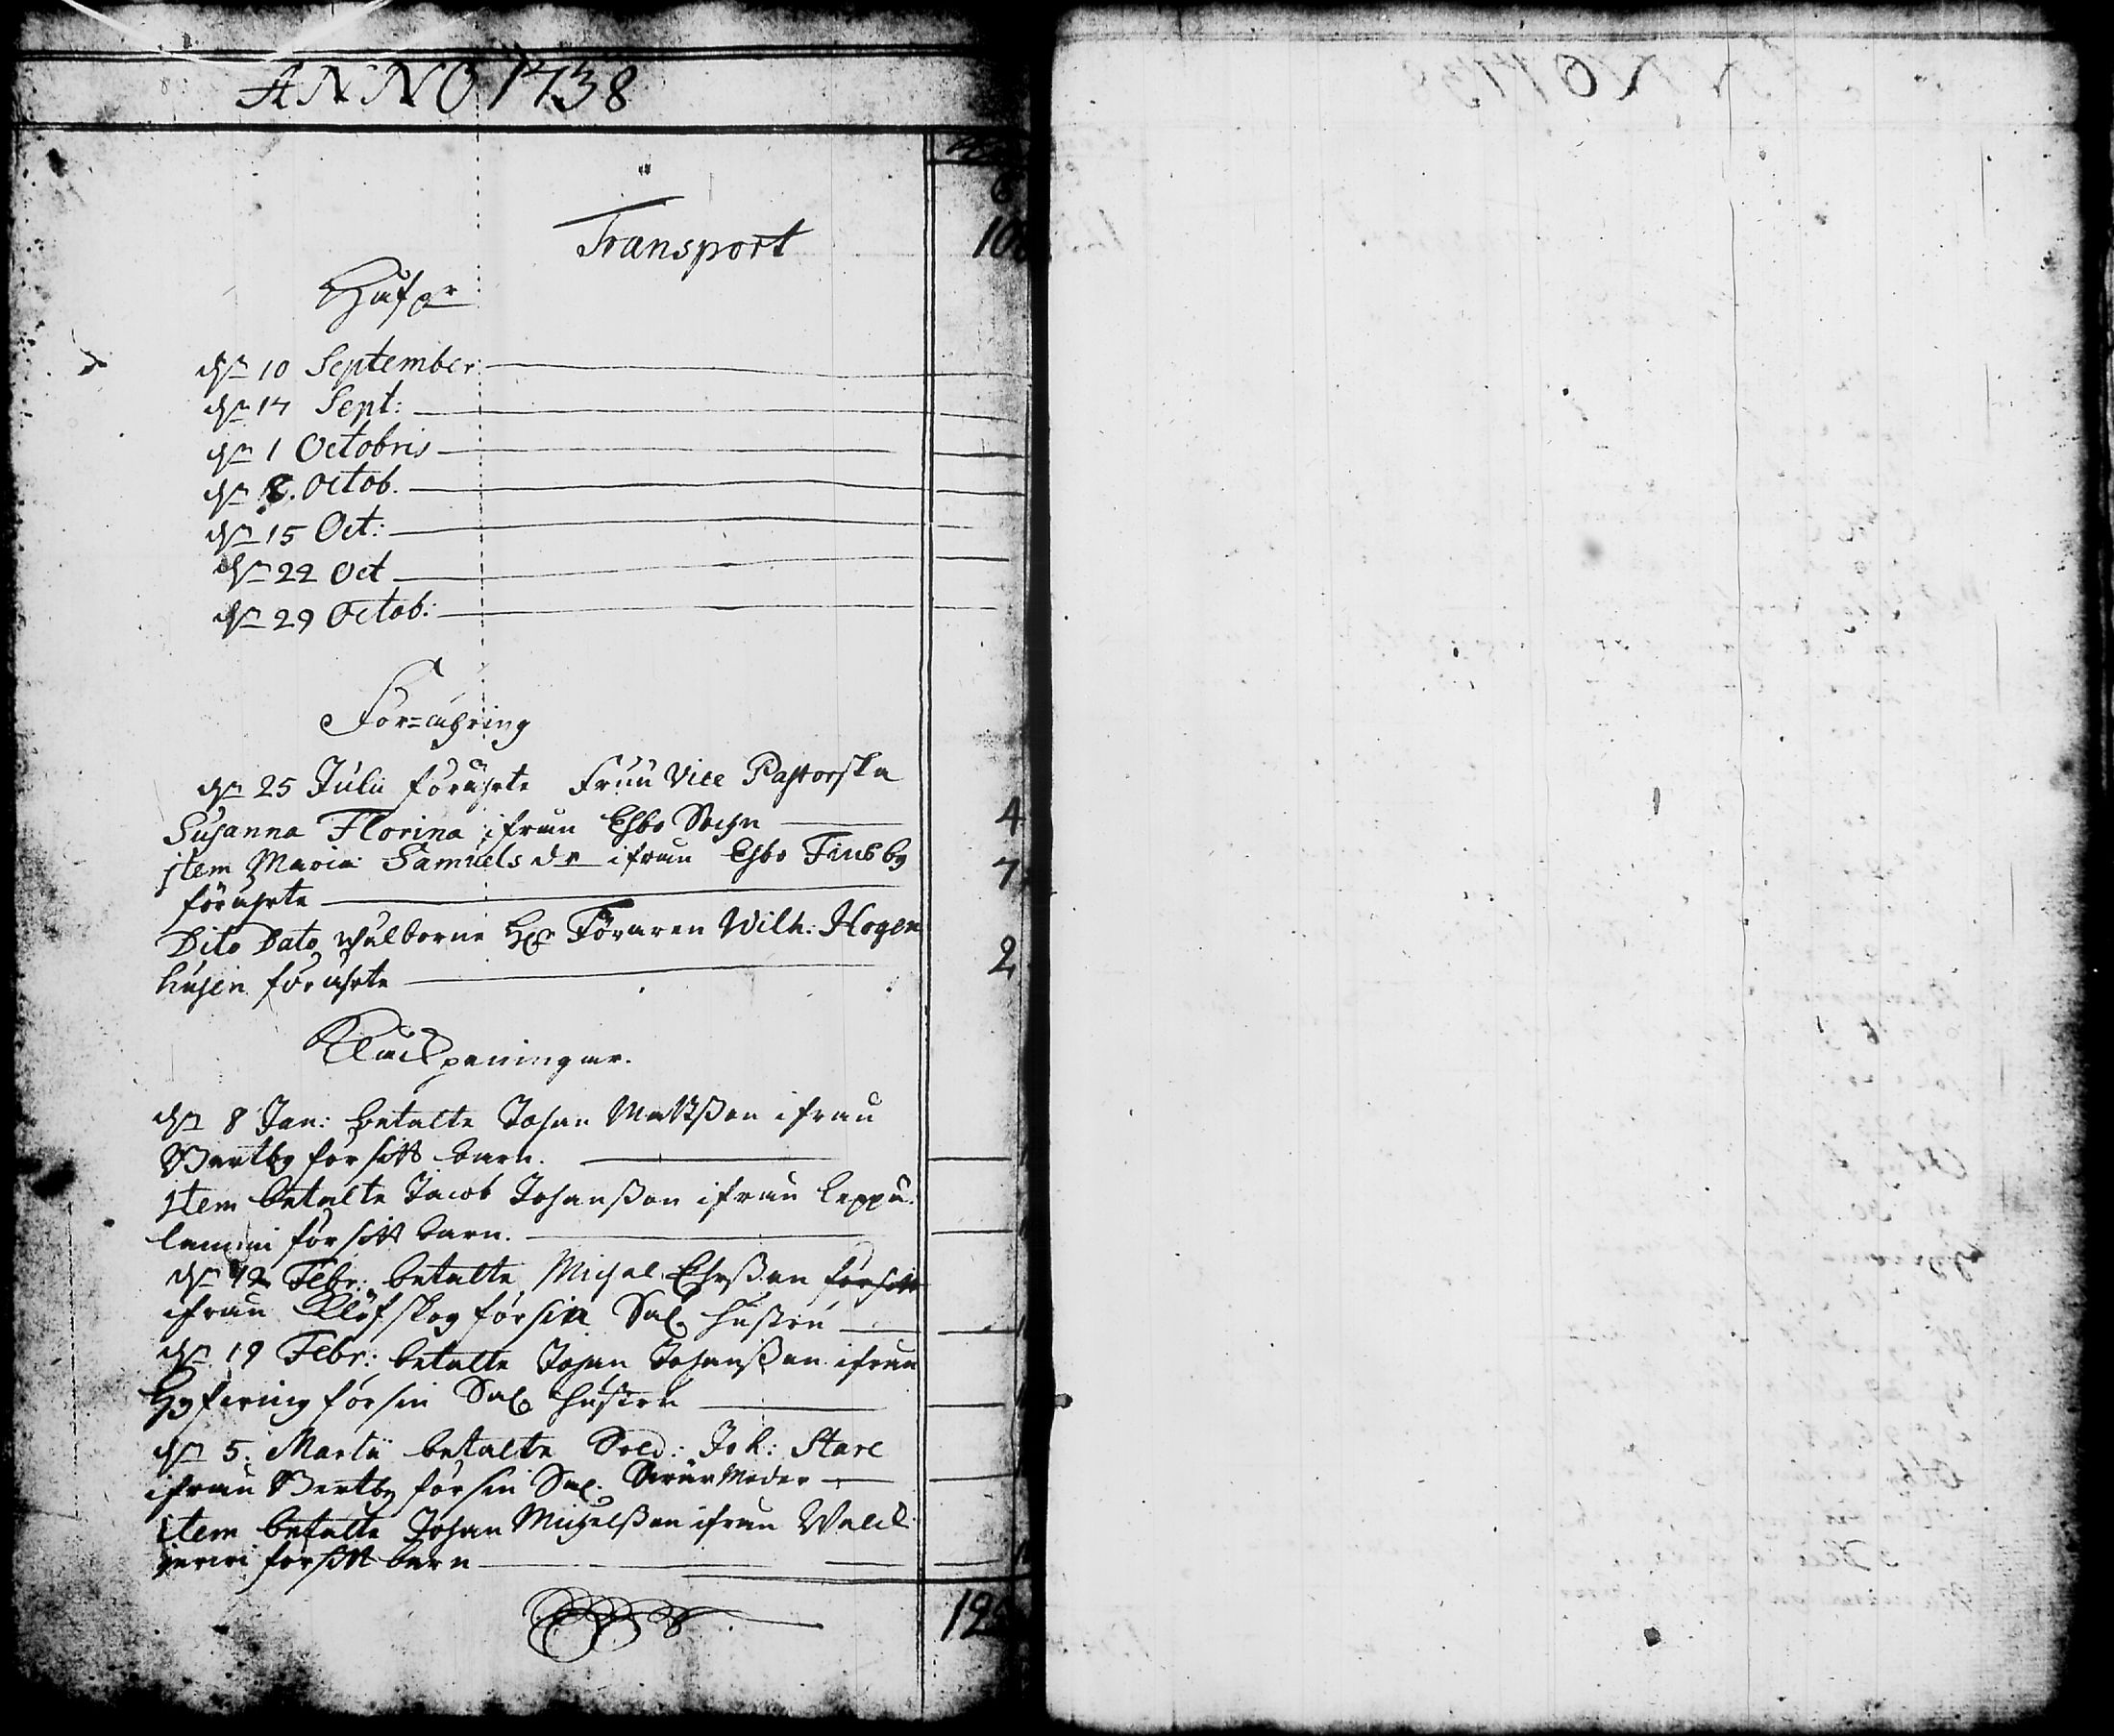 ANNO 1738
Transport
10
Håf pr
dn 10 September
dn 14 Sept:
dn 1 Octobris
dn 8. Octob.
dn 15 Oct:
dn 22 Oct
dn 29 Octob:
För=ähring
dn 25 Julii förährte Fruu Vice Pastorska
Susanna Florina ifrån Esbo Sochn 4
jtem Maria Samuels dr ifrån Esbo Finsby 7
förährte
Dito Dato wälborne Hr Föraren Wilh: Hogen
husen förährte 2
Klåckpeningar.
dn 8 Jan: betalte Johan Mattsson ifrån
Bertby för sitt barn.
jtem betalte Jacob Johansson ifrån Leppä
lammi för sitt barn.
dn 12 Febr: betalte Michel Ersson för sitt
ifrån Klöfskog för sin Sal. hustru
dn 19 Febr: betalte Johan Johansson ifrån
för sin Sal. hustru
dn 5. Martii betalte Sold: Joh: Stare
ifrån Bertby för sin Sal. Swär Moder
item betalte Johan Michelsson ifrån Walk
jerwi för sitt barn
12